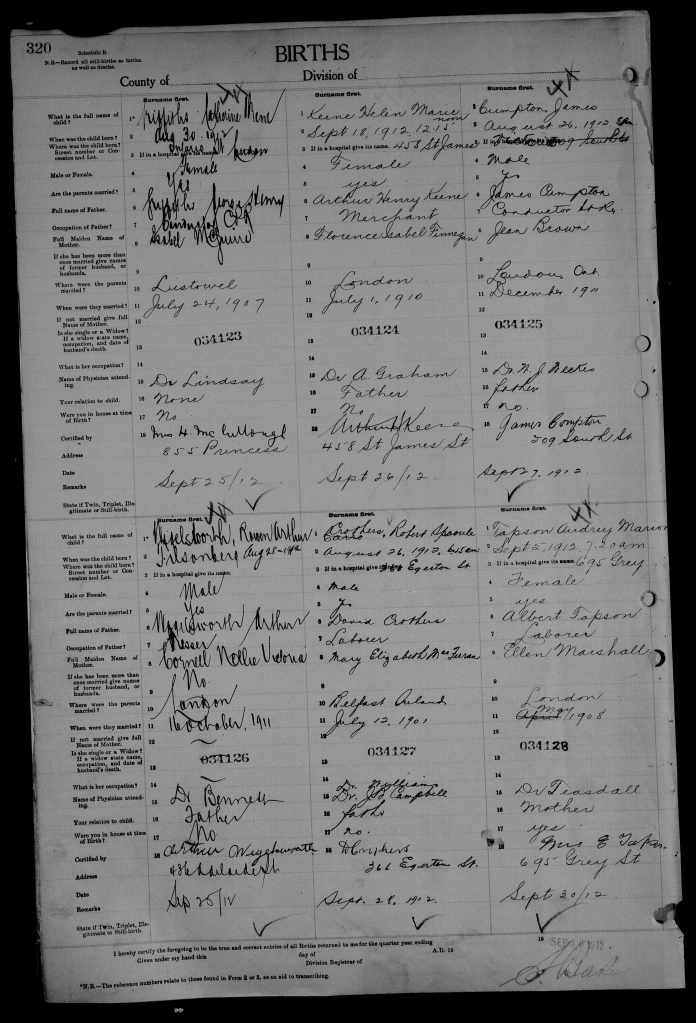 320
Schedule B
N.B.—Record all still-births as births, as well as deaths.
BIRTHS
County of
Division of
Surname first.
Surname first.
Surname first.
What is the full name of child?
When was the child born?
Where was the child born? Street number or Concession and Lot.
Male or Female.
Are the parents married?
Full name of Father.
Occupation of Father?
Full Maiden Name of Mother.
If she has been more than once married give names of former husband, or husbands.
Where were the parents married?
When were they married?
If not married give full Name of Mother.
Is she single or a Widow? If a widow state name, occupation, and date of husband's death.
What is her occupation?
Name of Physician attending.
Your relation to child.
Were you in house at time of Birth?
Certified by
Address
Date
Remarks
State if Twin, Triplet, Illegitimate or Still-birth.
1 Griffiths Catherine Irene
2 Aug 30 1912
3 If in a hospital give its name. Ontario St London
4 Female
5 Yes
6 Griffiths George Henry
7 C.P.R.
8 Isabel McGuire
10 Listowel
11 July 24, 1907
034123
15 Dr Lindsay
16 None
17 No
18 Mrs H McCullough
855 Princess
Sept 25/12
1 Keene Helen Marie
2 Sept 18, 1912 12.15 noon
3 If in a hospital give its name. 458 St James
4 Female
5 yes
6 Arthur Henry Keene
7 Merchant
8 Florence Isabel Finnegan
10 London
11 July 1, 1910
034124
15 Dr A. Graham
16 Father
17 No
18 Arthur H Keene
458 St James St
Sept 26/12
1 Cumpton James
2 August 26, 1912
3 If in a hospital give its name. 709 South St
4 Male
5 Yes
6 James Cumpton
7 Conductor
8 Jean Brown
10 London Ont.
11 December 1911
034125
15 Dr. W. J. Weekes
16 father
17 no.
18 James Compton
709 South St
Sept 27, 1912
Surname first.
Surname first.
Surname first.
What is the full name of child?
When was the child born?
Where was the child born? Street number or Concession and Lot.
Male or Female.
Are the parents married?
Full name of Father.
Occupation of Father?
Full Maiden Name of Mother.
If she has been more than once married give names of former husband, or husbands.
Where were the parents married?
When were they married?
If not married give full Name of Mother.
Is she single or a Widow? If a widow state name, occupation, and date of husband's death.
What is her occupation?
Name of Physician attending.
Your relation to child.
Were you in house at time of Birth?
Certified by
Address
Date
Remarks
State if Twin, Triplet, Illegitimate or Still-birth
1 Arthur
2 Aug 25-1912
3 If in a hospital give its name.
4 Male
5 Yes
6 Wigelsworth Arthur
7 Presser
8 Cornell Nellie Victoria
9 No
10 London
11 16 October, 1911
034126
15 Dr Bennett
16 Father
17 No
18 Arthur Wigelsworth
436 Adelaide St
Sep 25/12
1 Crothers, Robert
2 August 26, 1912. 6.45 am
3 If in a hospital give its name. Egerton St
4 Male
5 Yes
6 David Crothers
7 Laborer
8 Mary Elizabeth
10 Belfast Ireland
11 July 12, 1901
034127
15 Dr. Campbell
16 father
17 no.
18 D Crothers
366 Egerton St.
Sept. 28, 1912
1 Tapson Audrey Marion
2 Sept 5, 1912 7.20 am
3 If in a hospital give its name. 695 Grey
4 Female
5 yes
6 Albert Tapson
7 Laborer
8 Ellen Marshall
10 London
11 April May /1908
034128
15 Dr Teasdall
16 Mother
17 yes
18 Mrs E Tapson
695 Grey St
Sept 30/12
I hereby certify the foregoing to be the true and correct entries of all Births returned to me for the quarter year ending
19
Given under my hand this
day of
A.D. 19
Division Registrar of
*N.B.—The reference numbers relate to those found in Form 2 or 3, as an aid to transcribing.